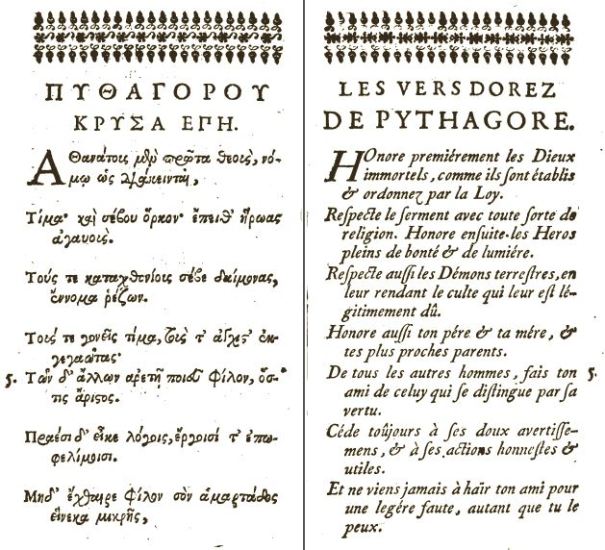 ΠΥΘΑΓΟΡΟΥ
ΚΡΥΣΑ ΕΠΗ.
ΑΘανάτοις μὲν πρῶτα θεοὺς, νό-
μῳ ὡς διάκεινται,
Τίμα· καὶ σέβου ὅρκον· ἔπειθ' ἥρωας
ἀγαυούς.
Τούς τε καταχθονίους σέβε δαίμονας,
ἔννομα ῥέζων.
Τούς τε γονεῖς τίμα, τούς τ' ἄγχιστ' ἐκ-
γεγαῶτας·
5. Τῶν δ' ἄλλων ἀρετῇ ποιοῦ φίλον, ὅσ-
τις ἄριστος.
Πραέσι δ' εἶκε λόγοις, ἔργοισί τ' ἐπω-
φελίμοισι.
Μηδ' ἔχθαιρε φίλον σὸν ἁμαρτάδος
εἵνεκα μικρῆς,
LES VERS DOREZ
DE PYTHAGORE.
HOnore premiérement les Dieux
immortels, comme ils ſont établis
& ordonnez par la Loy.
Reſpecte le ſerment avec toute ſorte de
religion. Honore enſuite les Heros
pleins de bonté & de lumiére.
Reſpecte auſſi les Démons terreſtres, en
leur rendant le culte qui leur eſt lé-
gitimement dû.
Honore auſſi ton pére & ta mére, &
tes plus proches parents.
De tous les autres hommes, fais ton 5.
ami de celuy qui ſe diſtingue par ſa
vertu.
Céde toûjours à ſes doux avertiſſe-
mens, & à ſes actions honneſtes &
utiles.
Et ne viens jamais à haïr ton ami pour
une legére faute, autant que tu le
peux.